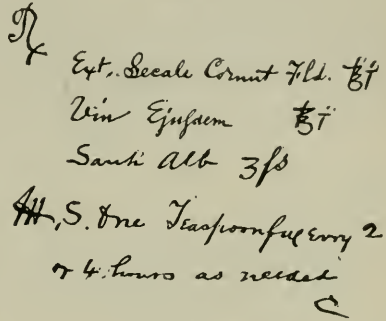 ℞
Ext. Secale Cornut Fld. ℥i
Vin Ejusdem ℥i
Santi Alb ʒſs
M, S. One Teaspoonful every 2
or 4 hours as needed
C